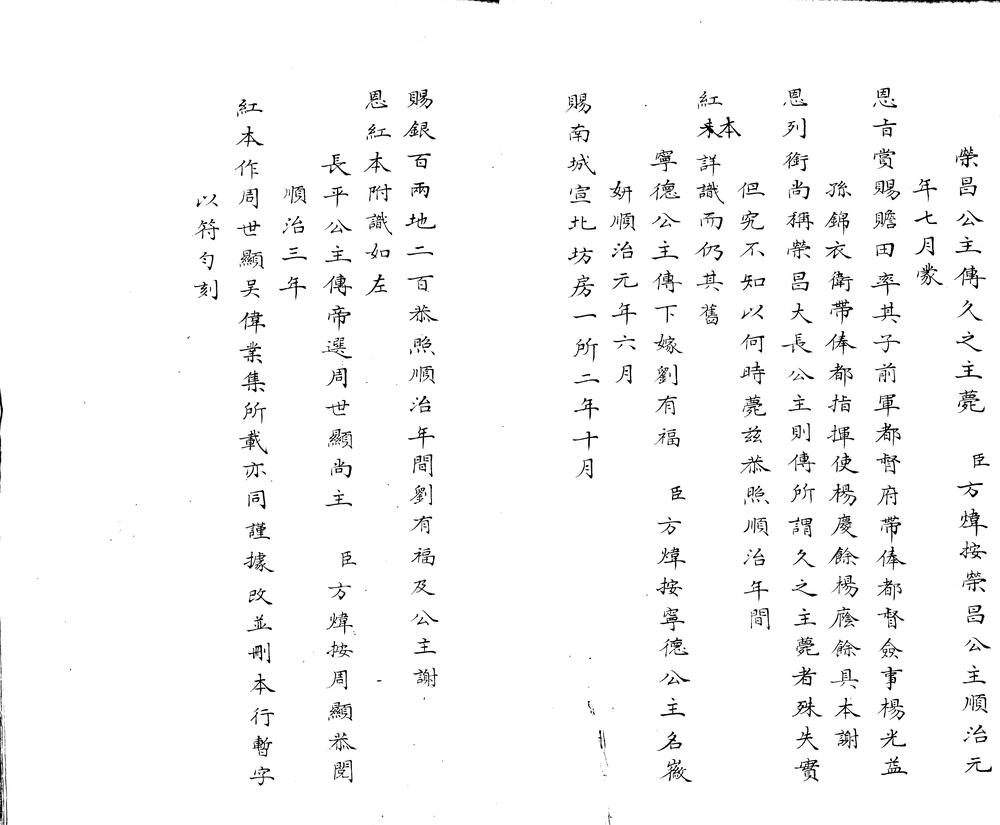 榮昌公主傳久之主薨　臣方煒按榮昌公主順治元
年七月蒙
恩旨賞賜贍田率其子前軍都督府帶俸都督僉事楊光益
孫錦衣衛帶俸都指揮使楊慶餘楊廕餘具本謝
恩列銜尚稱榮昌大長公主則傳所謂久之主薨者殊失實
但究不知以何時薨茲恭照順治年間
紅本未詳識而仍其舊
寧德公主傳下嫁劉有福　臣方煒按寧德公主名嫩
妍順治元年六月
賜南城宣北坊房一所二年十月
賜銀百兩地二百恭照順治年間劉有福及公主謝
恩紅本附識如左
長平公主傳帝選周世顯尚主　臣方煒按周顯恭閱
順治三年
紅本作周世顯吳偉業集所載亦同謹據改並刪本行暫字
以符勻刻